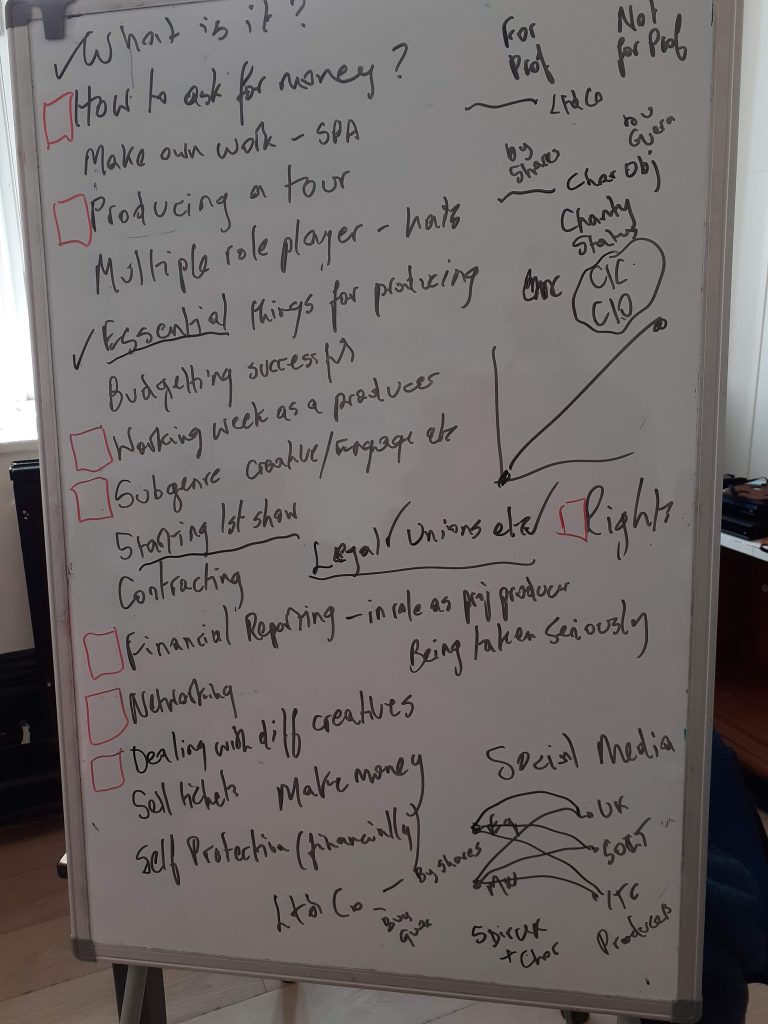 What is it?
How to ask for money?
Make own work - SPA
Producing a tour
Multiple role player - hats
Essential things for producing
Budgetting successf
Working week as a producer
Subgenre creative/engage etc
Starting 1st show
Contracting
Financial Reporting - in role as prj producer
Networking
Dealing with diff creatives
Sell tickets Make money
Self Protection (financially)
Ltd Co - By shares
Guar
For Prof
Not for Prof
Ltd Co
by Shares
Guara
Char Obj
Charity Status
CIC
CIO
Legal/Unions etc/ Rights
Being taken seriously
Social Media
Eq
UK
SOLT
ITC
Producers
5 Dir UK
+ Char